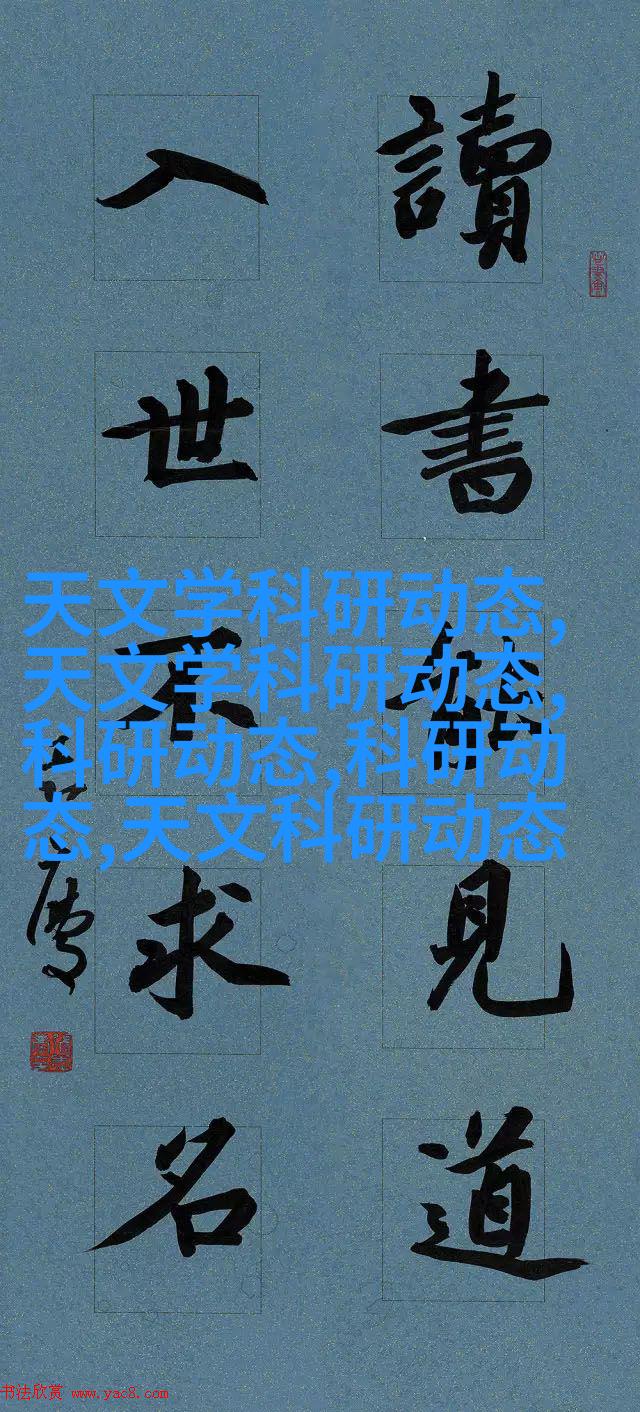 讀書能見道
入世不求名
天文学科研动态,
天文学科研动态,
科研动态,科研动
态,天文科研动态
书法欣赏 www.yac8.com